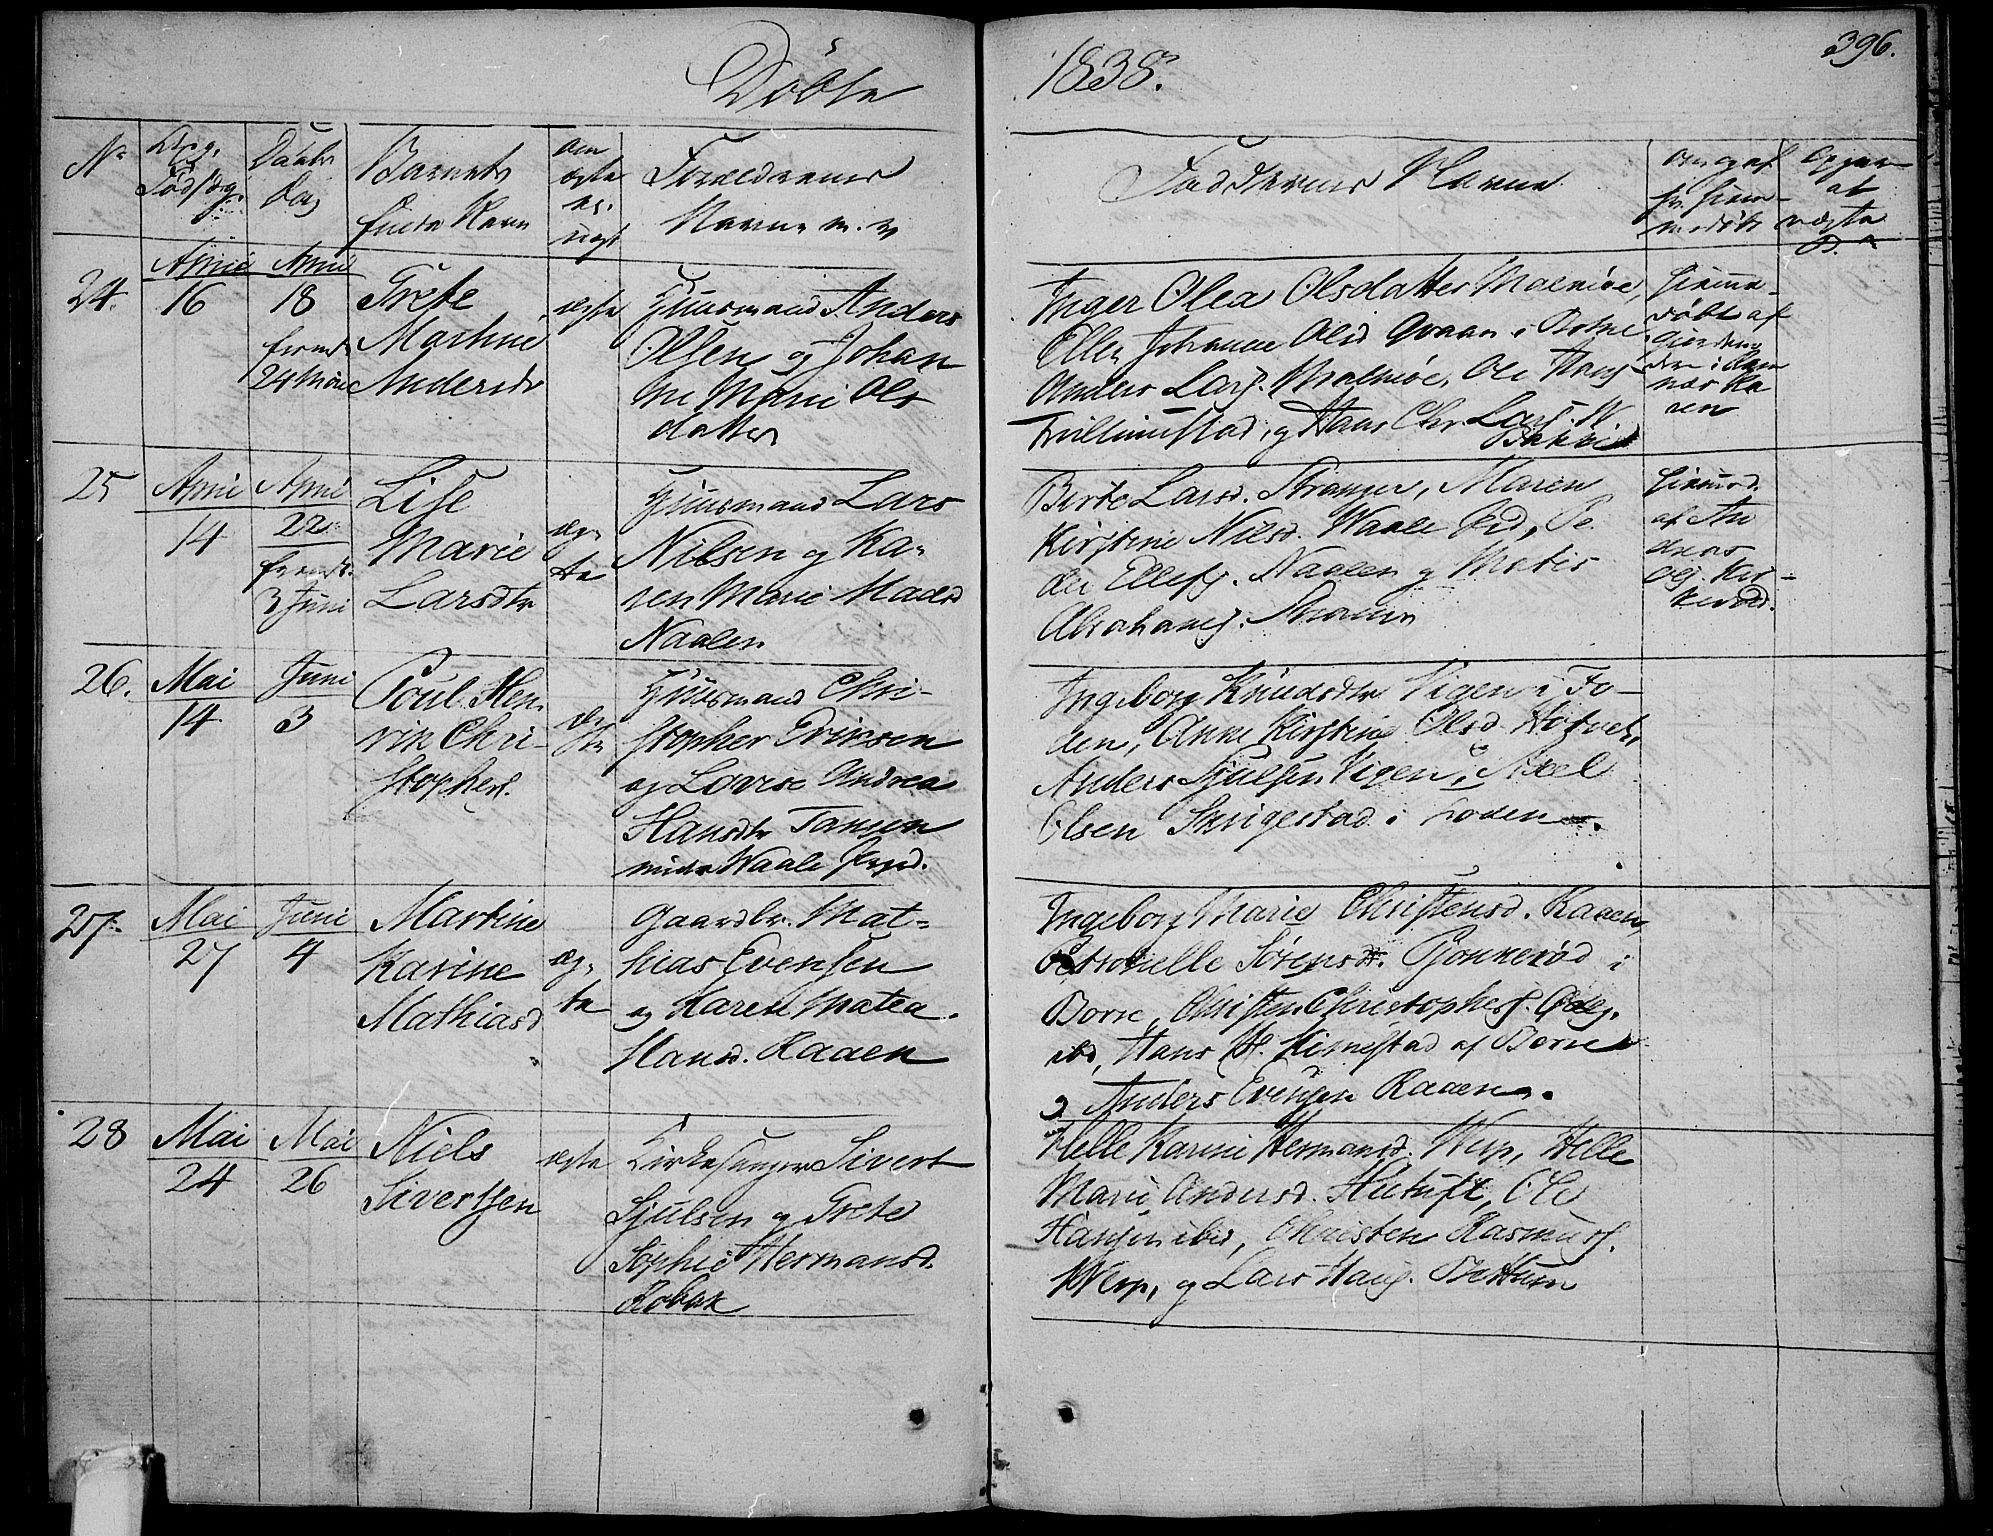 Döbte 1838. 396.
No
Dag.
Födsdg.
Daabs
Dag
Barnets
fulde Navn
om
ægte
el.
uegt
Forældrenes
Navne m. v
Faddernes Navne
om og af
hv. hiem-
medöbt
Opgav
at
uægte
24. April 16
April 18
fremst.
24 Mai
Grete
Martine
Andersdr
ægte
Huusmand Anders
Olsen og Johan
ne Marie Ols
datter
Inger Olea Olsdatter Malmöe,
Ellen Johanne Olsd
Anders Lars. Malmöe, Ole Hans
Trillumstad, og Hans Chr. Lars. N.
Bakke
hiemme-
döbt af
25 April 14
April 22
fremst.
3 Juni
Lise
Marie
Larsdtr
æg-
te
Huusmand Lars
Nilsen og Ka-
ren Marie Madsd
Naalen
Berte Larsd. Stranger, Maren
Kirstine Nilsd. Waale Pd, Pe-
der Ellefs. Naalen og Matis
Abrahams.
hiemmed.
af An
dreas
Olj. Kir-
kevold.
26. Mai 14
Juni 3
Poul Hen-
rik Chri-
stophers.
æg
te
Huusmand Chri-
stopher Eriksen
og Lovise Andrea
Hansdtr Jansen
under Waale Pgjd.
Ingeborg Knudsdtr Vigen i Fo-
den, Anne Kirstine Olsd Hotvet,
Anders Sjulsen Vigen, Axel
Olsen Skrigestad i Foden.
27. Mai 27
Juni 4
Martine
Karine
Mathiasd
æg-
te
Gaardbr. Mat-
hias Evensen
og Karen Matea
Hansd. Raaen
Ingeborg Marie Christensd. Raaen,
Petronelle Sörensdr. Gjonneröd i
Borre, Christen Christophers.
ibd, Hans H. Kimestad af Borre
og Anders Evensen Raaen.
28 Mai 24
Mai 26
Niels
Sivertsen
ægte
Kirkesanger Sivert
Sjulsen og Grete
Sophie Hermansd.
Robak
Helle Karine Hermansd. Werp, Helle
Marie Andersd. Hietuft, Ole
Hansen ibid, Christen Rasmus.
Werp, og Lars Hans. Bettum